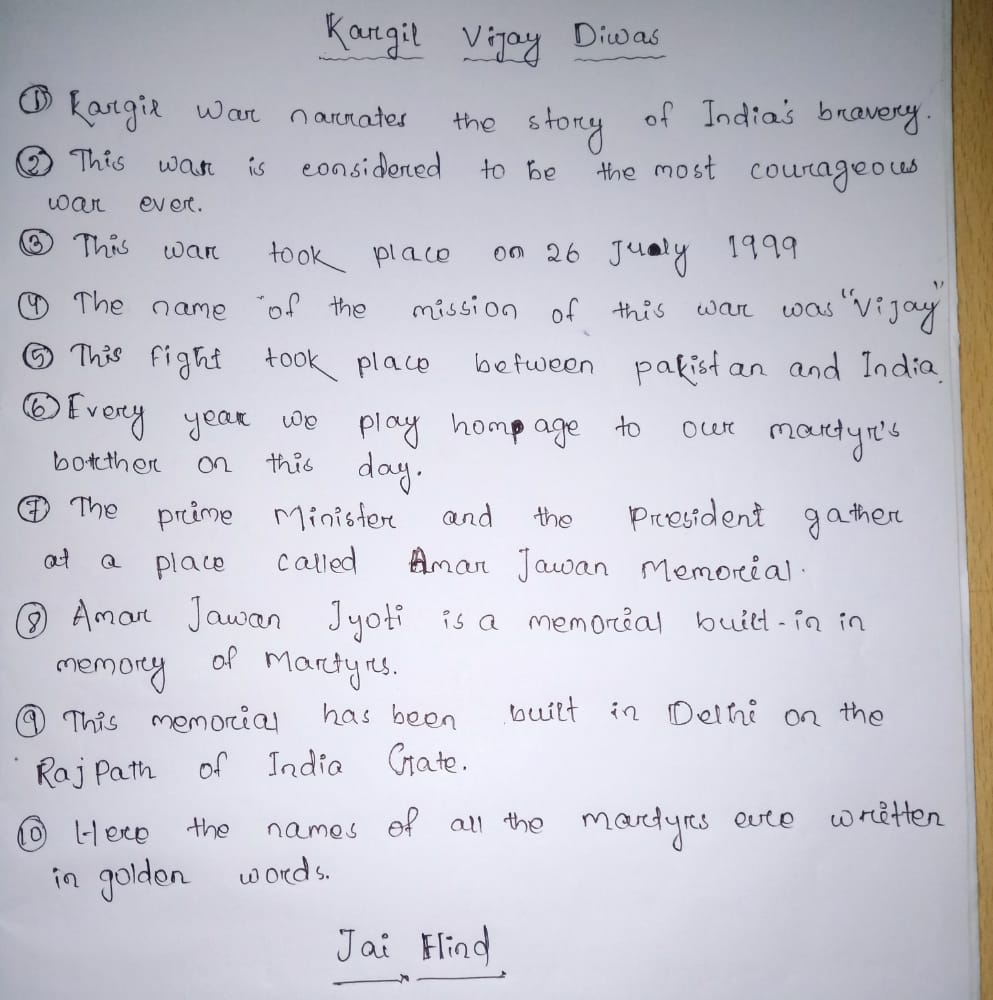 Kargil Vijay Diwas
① Kargil war narrates the story of India's bravery.
② This war is considered to be the most courageous
war ever.
③ This war took place on 26 July 1999
④ The name of the mission of this war was "Vijay"
⑤ This fight took place between pakistan and India.
⑥ Every year we play hompage to our martyr's
botcther on this day.
⑦ The prime Minister and the President gather
at a place called Amar Jawan Memorial.
⑧ Amar Jawan Jyoti is a memorial built-in in
memory of Martyrs.
⑨ This memorial has been built in Delhi on the
Raj Path of India Gate.
⑩ Here the names of all the martyrs are written
in golden words.
Jai Hind